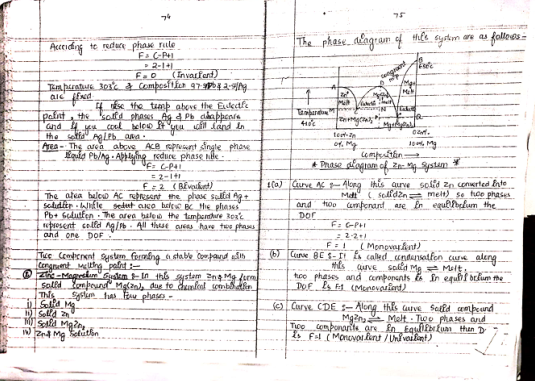 74
According to reduce phase rule
F = C-P+1
= 2-1+1
F = 0 (Invarient)
Temperature 303°C & Composition 97.4% Pb & 2.6% Ag
are fixed.
If rise the temp above the Eutectic
point, the solid phases Ag & Pb disappears
and if you cool below it you will land in
the solid Ag/Pb area.
Area - The area above ACB represent single phase
liquid Pb/Ag. Applying reduce phase rule.
F = C-P+1
= 2-1+1
F = 2 (Bivarient)
The area below AC represent the phase solid Ag +
solution. While area below BC the phases
Pb + solution. The area below the temperature 303°C
represent solid Ag/Pb. All these areas have two phases
and one DOF.
Two component system forming a stable compound with
congruent melting point :-
Zinc-Magnesium System :- In this system Zn & Mg form
solid compound Mg(Zn)2 due to chemical combination
This system has four phases -
i) Solid Mg
ii) Solid Zn
iii) Solid MgZn2
iv) Zn & Mg Solution
75
The phase diagram of this system are as follows -
congruent
B
A
D
C
E
Melt
Temperature
100% Zn
0% Mg
0% Zn
100% Mg
composition
* Phase diagram of Zn-Mg System *
1(a) Curve AC :- Along this curve solid Zn converted into
Melt (solid Zn ⇌ melt) so two phases
and two componant are in equilibrium the
DOF
F = C-P+1
= 2-2+1
F = 1 (Monovarient)
(b) Curve BE :- It is called condensation curve along
this curve solid Mg ⇌ Melt,
two phases and components is in equilibrium the
DOF is F=1 (Monovarient)
(c) Curve CDE :- Along this curve Solid compound
MgZn2 ⇌ Melt. Two phases and
Two componants are in Equilibrium then D
is F=1 (Monovarient / Univarient)